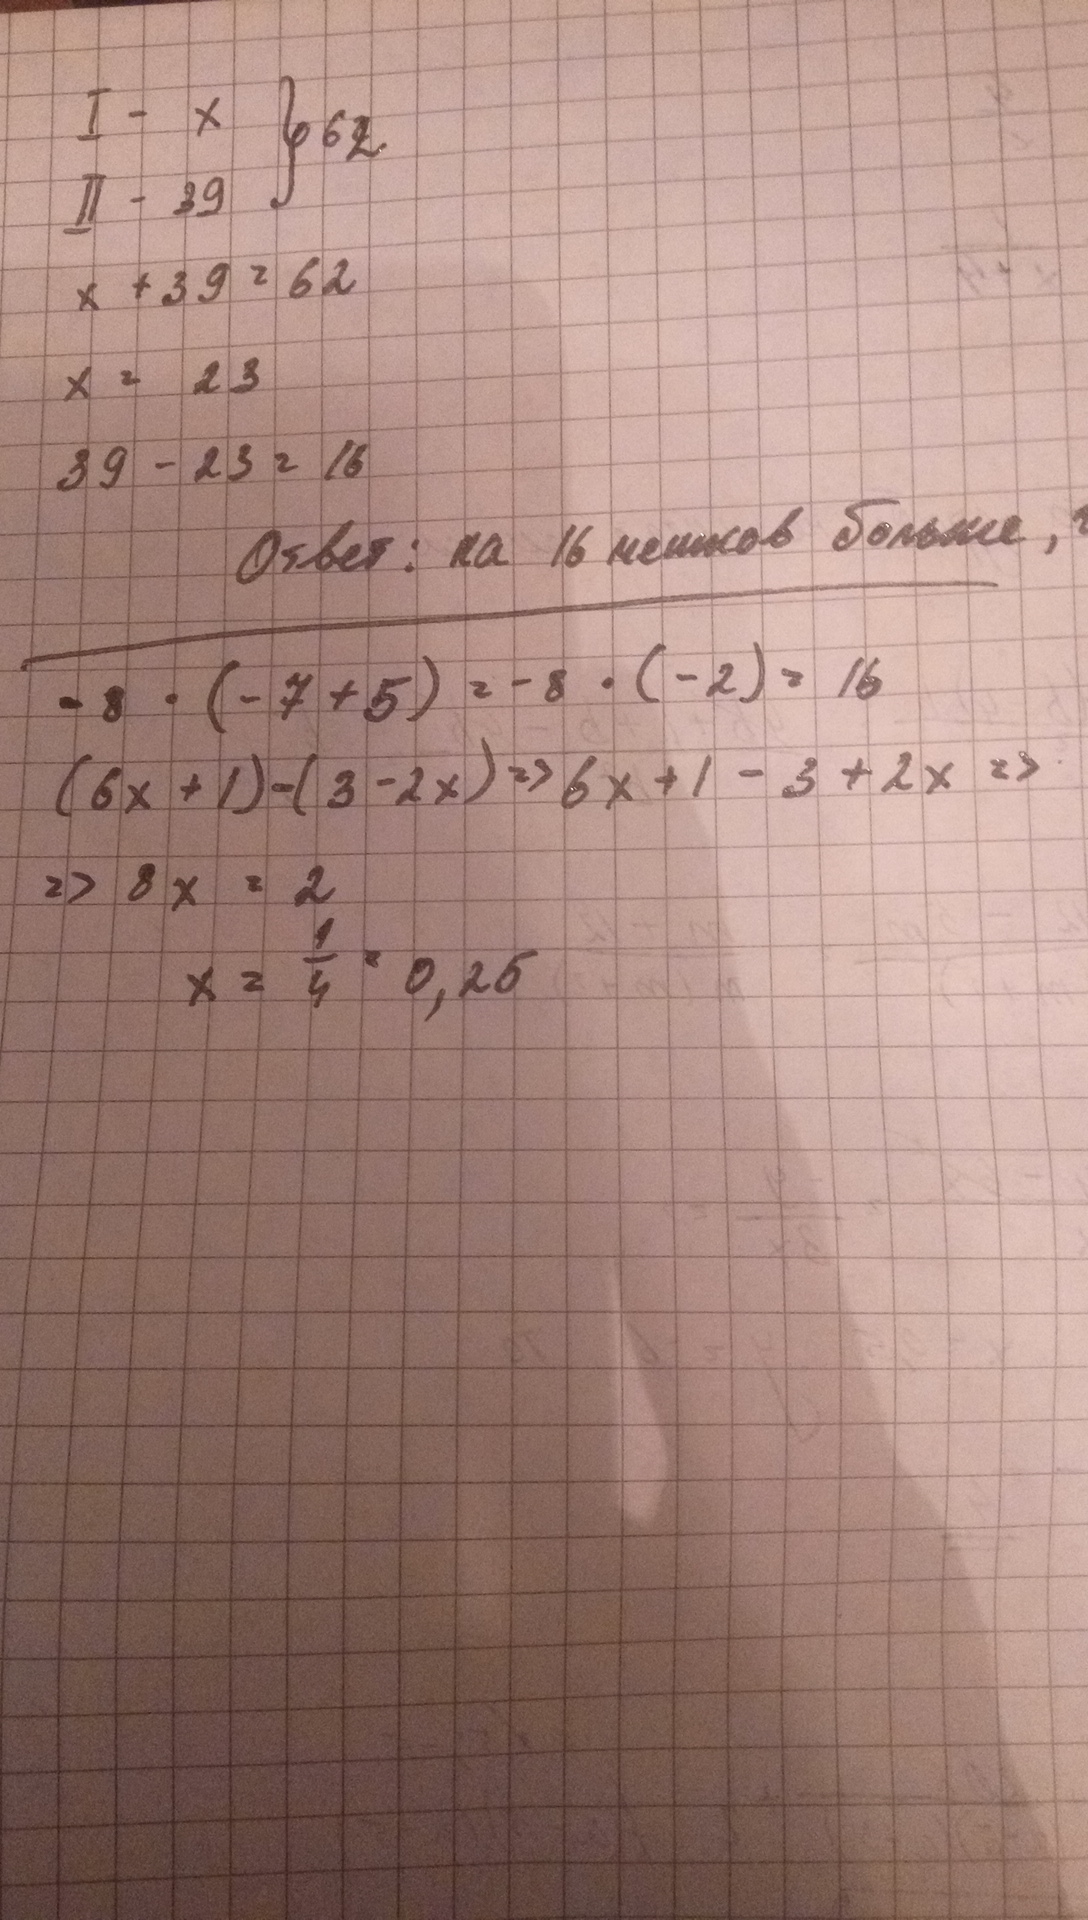 I - x } 62
II - 39
x + 39 = 62
x = 23
39 - 23 = 16
Ответ: на 16 мешков больше,
-8 · (-7+5) = -8 · (-2) = 16
(6x + 1) - (3 - 2x) => 6x + 1 - 3 + 2x =>
=> 8x = 2
x = 1/4 = 0,25